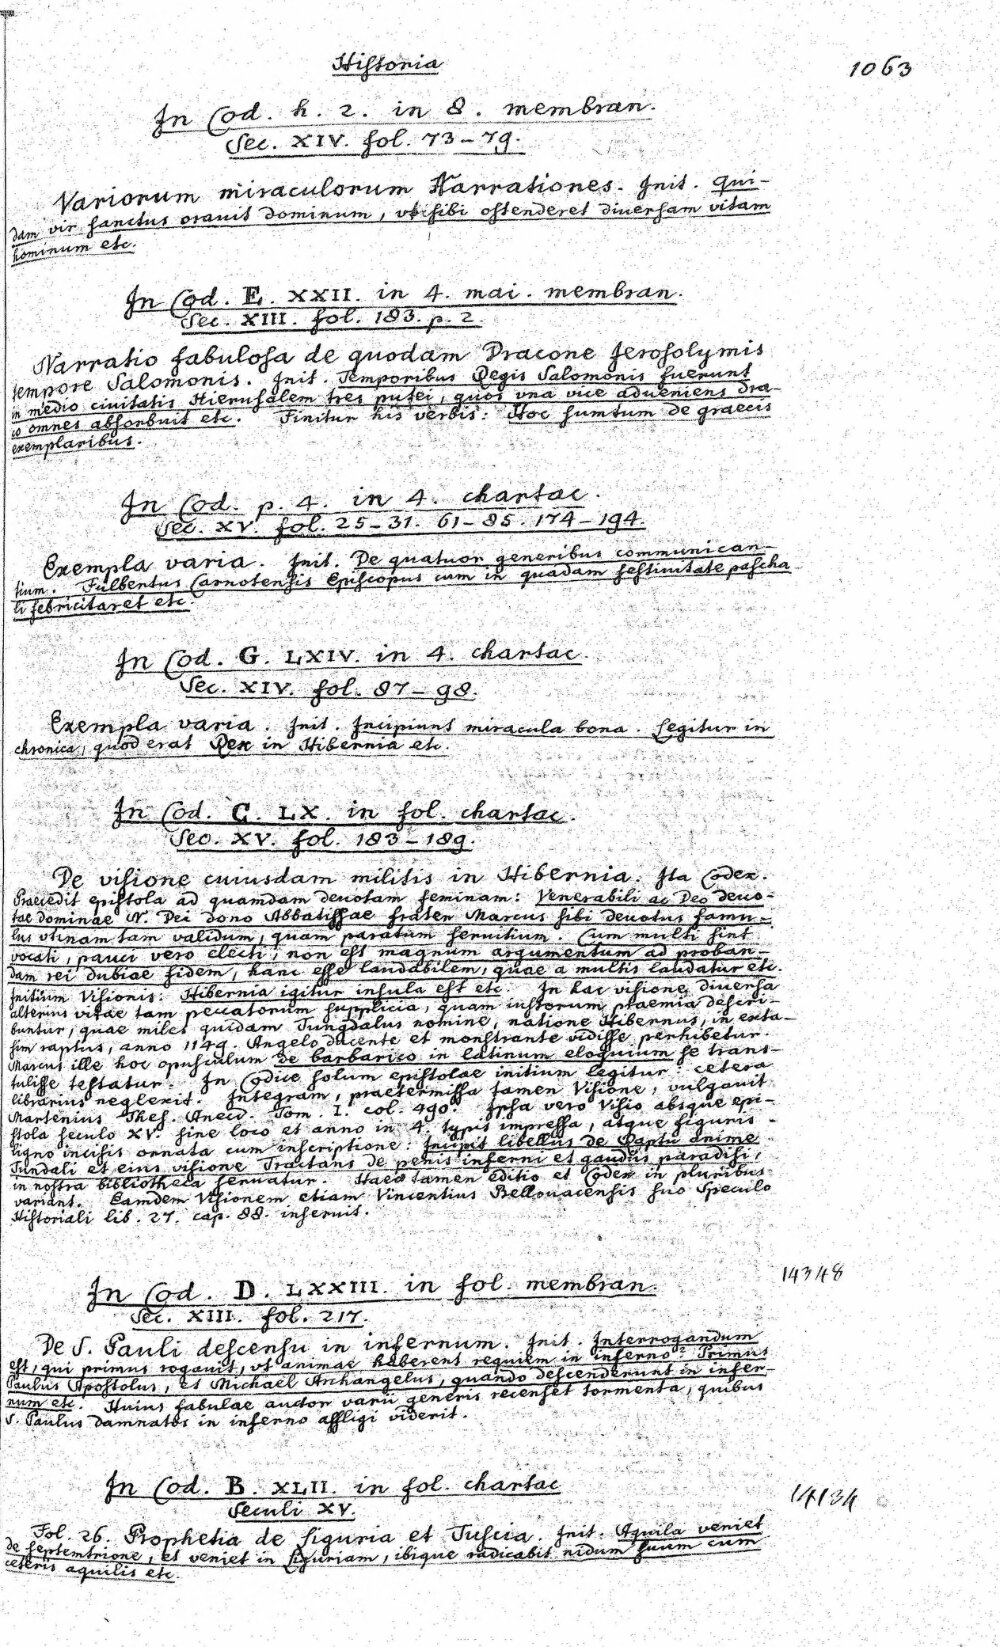 Historia
1063
In Cod. h. 2. in 8. membran.
Sec. XIV. fol. 73-79.
Variorum miraculorum Narrationes. Init. Qui-
dam vir sanctus orauit dominum, vt sibi ostenderet diuersam vitam
hominum etc.
In Cod. E. XXII. in 4. mai. membran.
Sec. XIII. fol. 183. p. 2.
Narratio fabulosa de quodam Dracone Jerosolymis
tempore Salomonis. Init. Temporibus Regis Salomonis fuerunt
in medio ciuitatis Hierusalem tres putei, quos vna vice adueniens dra-
co omnes absorbuit etc. Finitur his verbis: Hoc sumtum de graecis
exemplaribus.
In Cod. p. 4. in 4. chartac.
Sec. XV. fol. 25-31. 61-85. 174-194.
Exempla varia. Init. De quatuor generibus communican-
tium. Fulbertus Carnotensis Episcopus cum in quadam festiuitate pascha
li febricitaret etc.
In Cod. G. LXIV. in 4. chartac.
Sec. XIV. fol. 87-98.
Exempla varia. Init. Incipiunt miracula bona. Legitur in
chronica, quod erat Rex in Hibernia etc.
In Cod. C. LX. in fol. chartac.
Sec. XV. fol. 183-189.
De visione cuiusdam militis in Hibernia. Ita Codex.
Praecedit epistola ad quamdam deuotam feminam: Venerabili ac Deo deuo-
tae dominae N. Dei dono Abbatissae frater Marcus sibi deuotus famu-
lus vtinam tam validum, quam paratum seruitium. Cum multi sint
vocati, pauci vero electi, non est magnum argumentum ad proban-
dam rei dubiae fidem, hanc esse laudabilem, quae a multis laudatur etc.
Initium Visionis: Hibernia igitur insula est etc. In hac visione diuersa
alterius vitae tam peccatorum supplicia, quam iustorum praemia descri-
buntur, quae miles quidam Tungdalus nomine, natione Hibernus, in exta-
sim raptus, anno 1149. Angelo ducente et monstrante vidisse perhibetur.
Marcus ille hoc opusculum de barbarico in latinum eloquium se trans-
tulisse testatur. In Codice solum epistolae initium legitur: cetera
librarius neglexit. Integram, praetermissa tamen Visione, vulgauit
Martenius Thes. Anecd. Tom. I. col. 490. Ipsa vero Visio absque epi-
stola seculo XV. sine loco et anno in 4. typis impressa, atque figuris
ligno incisis ornata cum inscriptione: Incipit libellus de Raptu anime
Tundali et eius visione Tractans de penis inferni et gaudiis paradisi,
in nostra bibliotheca seruatur. Haec tamen editio et Codex in pluribus
variant. Eamdem Visionem etiam Vincentius Bellouacensis suo Speculo
Historiali lib. 27. cap. 88. inseruit.
14348
In Cod. D. LXXIII. in fol. membran.
Sec. XIII. fol. 217.
De S. Pauli descensu in infernum. Init. Interrogandum
est, qui primus rogauit, vt animae haberent requiem in inferno? Primus
Paulus Apostolus, et Michael Archangelus, quando descenderunt in infer-
num etc. Huius fabulae auctor varii generis recenset tormenta, quibus
S. Paulus damnatos in inferno affligi viderit.
In Cod. B. XLII. in fol. chartac
Seculi XV.
14134
Fol. 26. Prophetia de Liguria et Tuscia. Init. Aquila veniet
de septemtrione, et veniet in Liguriam, ibique radicabit nidum suum cum
ceteris aquilis etc.